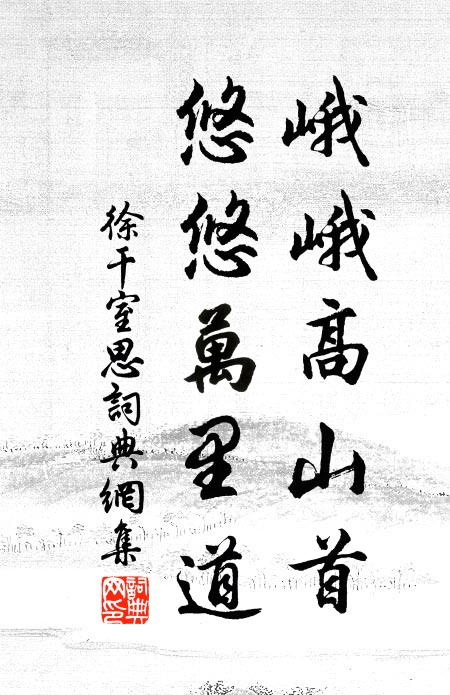 峨峨高山首
悠悠萬里道
徐干室思詞典網集
詞典網印